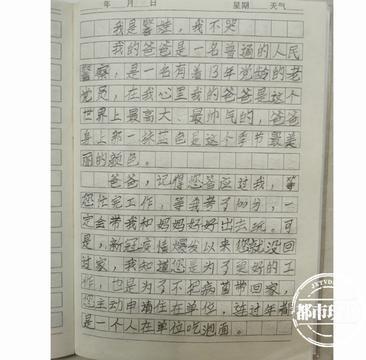 年 月 日 星期 天气
我是警娃，我不哭
我的爸爸是一名普通的人民
警察，是一名有着13年党龄的老
党员，在我心里我的爸爸是这个
世界上最高大、最帅气的，爸爸
身上那一抹蓝色是这个季节最美
丽的颜色。
爸爸，记得您答应过我，等
您忙完工作，等我考了100分，一
定会带我和妈妈好好出去玩。可
是，新冠疫情爆发以来您就没回
过家，我知道您是为了更好的工
作，也是为了不把病菌带回家，
您主动申请住在单位，连过年都
是一个人在单位吃泡面。
都市